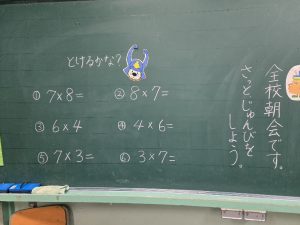 とけるかな？
① 7×8=
② 8×7=
③ 6×4
④ 4×6=
⑤ 7×3=
⑥ 3×7=
全校朝会です。
さっとじゅんびを
しよう。